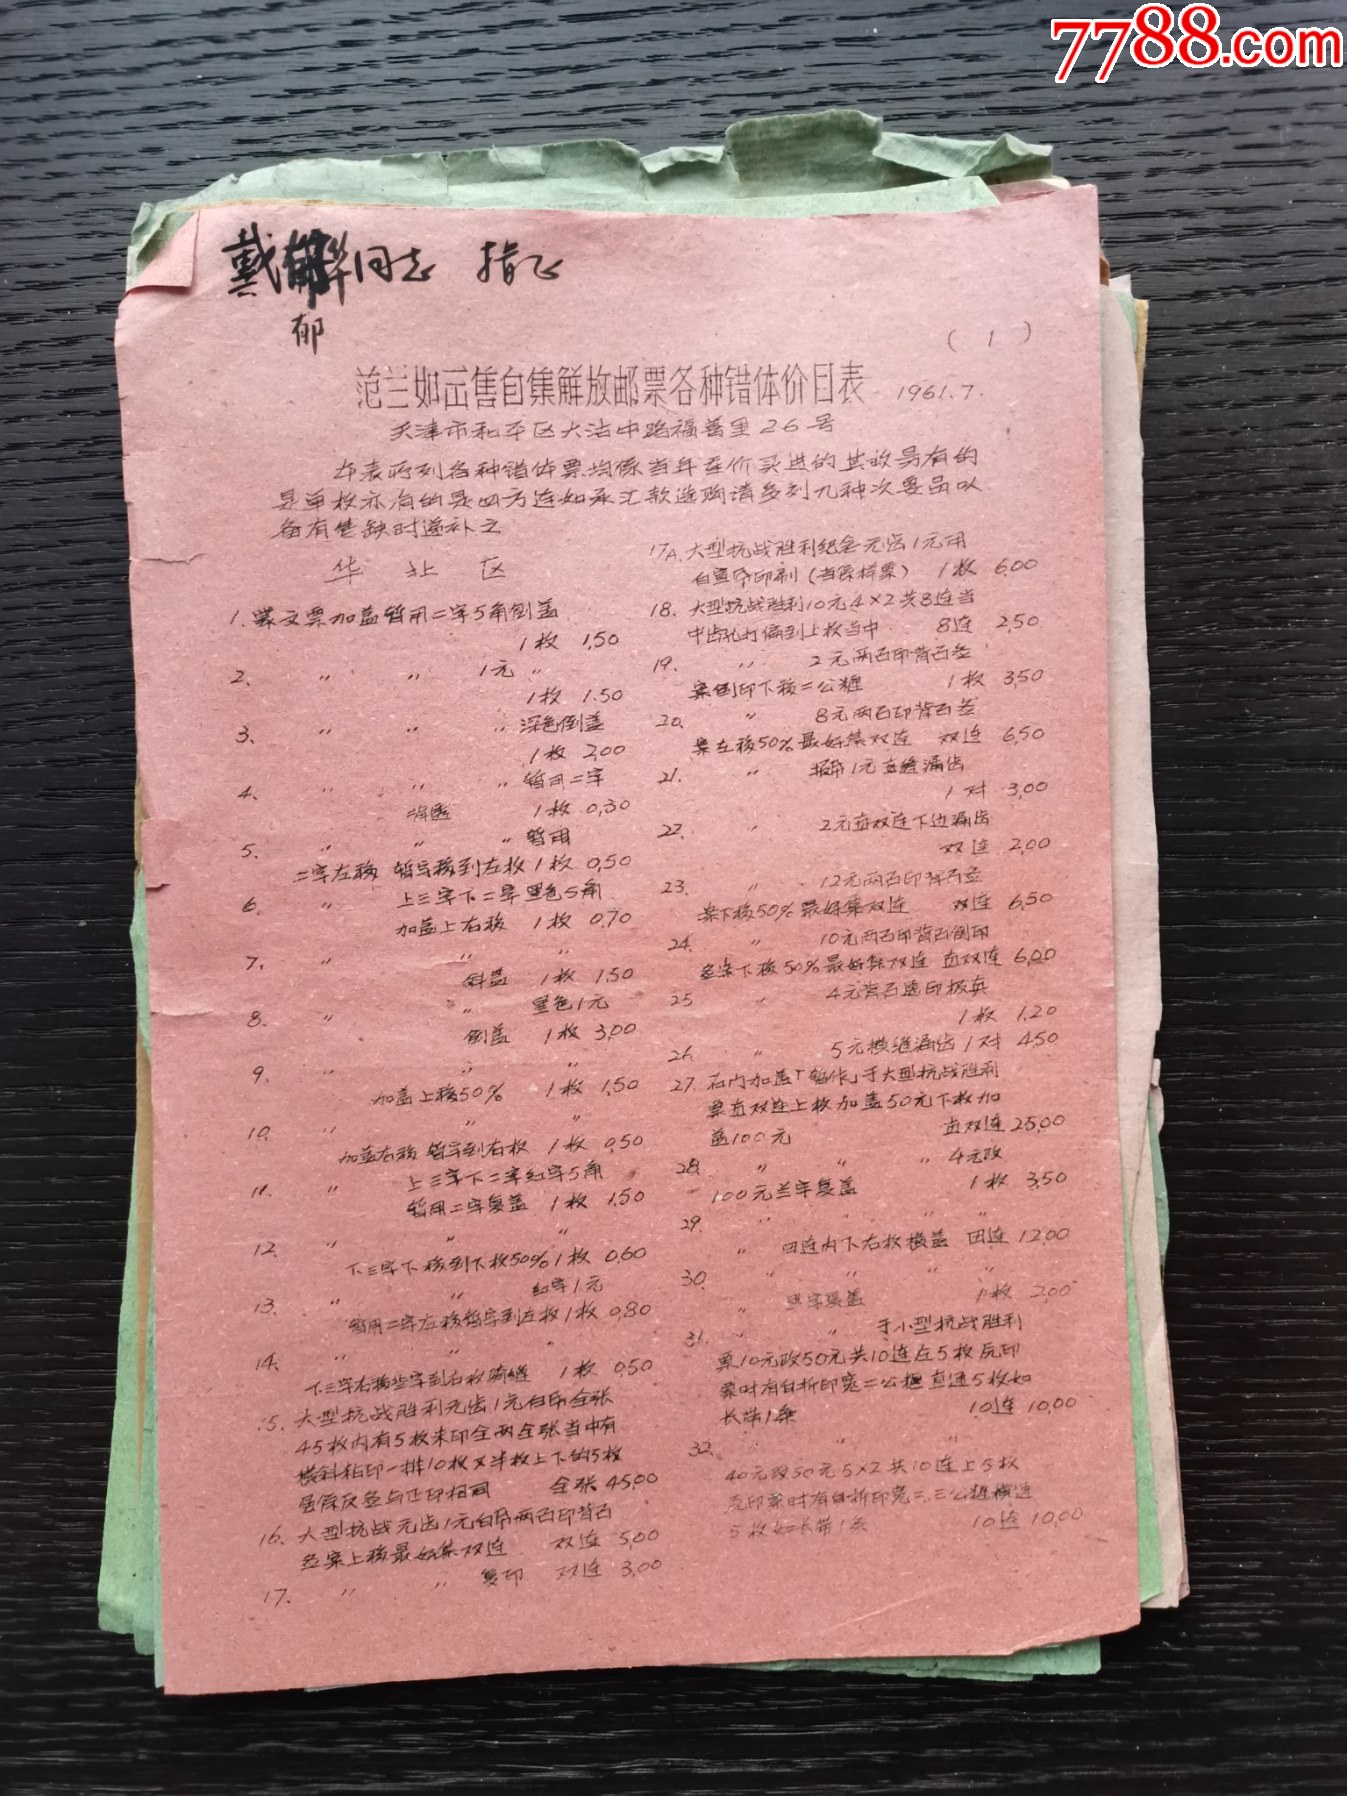 7788.com
戴 华同志 指正
郁
(1)
范兰如出售自集解放邮票各种错体价目表 1961.7.
天津市和平区大沽中路福善里26号
本表所列各种错体票均系当年在价买进的其故另有的
是单枚亦有的是四方连如承汇款选购请多列几种次要品以
备有售缺时递补之
华北区
1. 票加盖暂用二字5角倒盖
1枚 1.50
2. 〃 〃 1元 〃
1枚 1.50
3. 〃 〃 〃 深色倒盖
1枚 2.00
4. 〃 〃 〃 暂用二字
1枚 0.30
5. 〃 〃 〃 暂用
二字左移 暂字移到左枚 1枚 0.50
6. 〃 上三字下二字黑色5角
加盖上右移 1枚 0.70
7. 〃 〃 〃
斜盖 1枚 1.50
8. 〃 〃 黑色1元
倒盖 1枚 3.00
9. 〃 〃 〃
加盖上移50% 1枚 1.50
10. 〃 〃 〃
加盖右移 暂字到右枚 1枚 0.50
11. 〃 上三字下二字红字5角
暂用二字复盖 1枚 1.50
12. 〃 〃 〃
下三字下移到下枚50% 1枚 0.60
13. 〃 〃 红字1元
暂用二字左移暂字到左枚 1枚 0.80
14. 〃 〃 〃
下三字右移些字到右枚骑缝 1枚 0.50
15. 大型抗战胜利无齿1元白印全张
45枚内有5枚未印全两全张当中有
横斜粘印一排10枚又半枚上下的5枚
是背反签与正印相同 全张 45.00
16. 大型抗战无齿1元白印两面印背面
签案上移最好集双连 双连 5.00
17. 〃 〃 复印 双连 3.00
17A. 大型抗战胜利纪念无齿1元用
白宣纸印刷(当系样票) 1枚 6.00
18. 大型抗战胜利10元4×2共8连当
中齿孔打偏到上枚当中 8连 2.50
19. 〃 2元两面印背面签
案倒印下移二公厘 1枚 3.50
20. 〃 8元两面印背面签
案左移50%最好集双连 双连 6.50
21. 〃 报纸1元直缝漏齿
1对 3.00
22. 〃 2元直双连下边漏齿
双连 2.00
23. 〃 12元两面印背面签
案下移50%最好集双连 双连 6.50
24. 〃 10元两面印背面倒印
签案下移50%最好集双连 直双连 6.00
25 〃 4元背面透印极真
1枚 1.20
26. 〃 5元横缝漏齿 1对 4.50
27. 石门加盖「暂作」于大型抗战胜利
票直双连上枚加盖50元下枚加
盖100元 直双连 25.00
28. 〃 〃 〃 4元改
100元兰字复盖 1枚 3.50
29. 〃 〃 〃 〃
〃 田连内下右枚横盖 田连 12.00
30. 〃 〃 〃 〃
〃 黑字复盖 1枚 2.00
31. 〃 〃 于小型抗战胜利
票10元改50元共10连左5枚底印
票时有白折印宽二公厘直通5枚如
长带1条 10连 10.00
32. 〃 〃 〃
40元改50元5×2共10连上5枚
底印票时有白折印宽二.三公厘横通
5枚如长带1条 10连 10.00